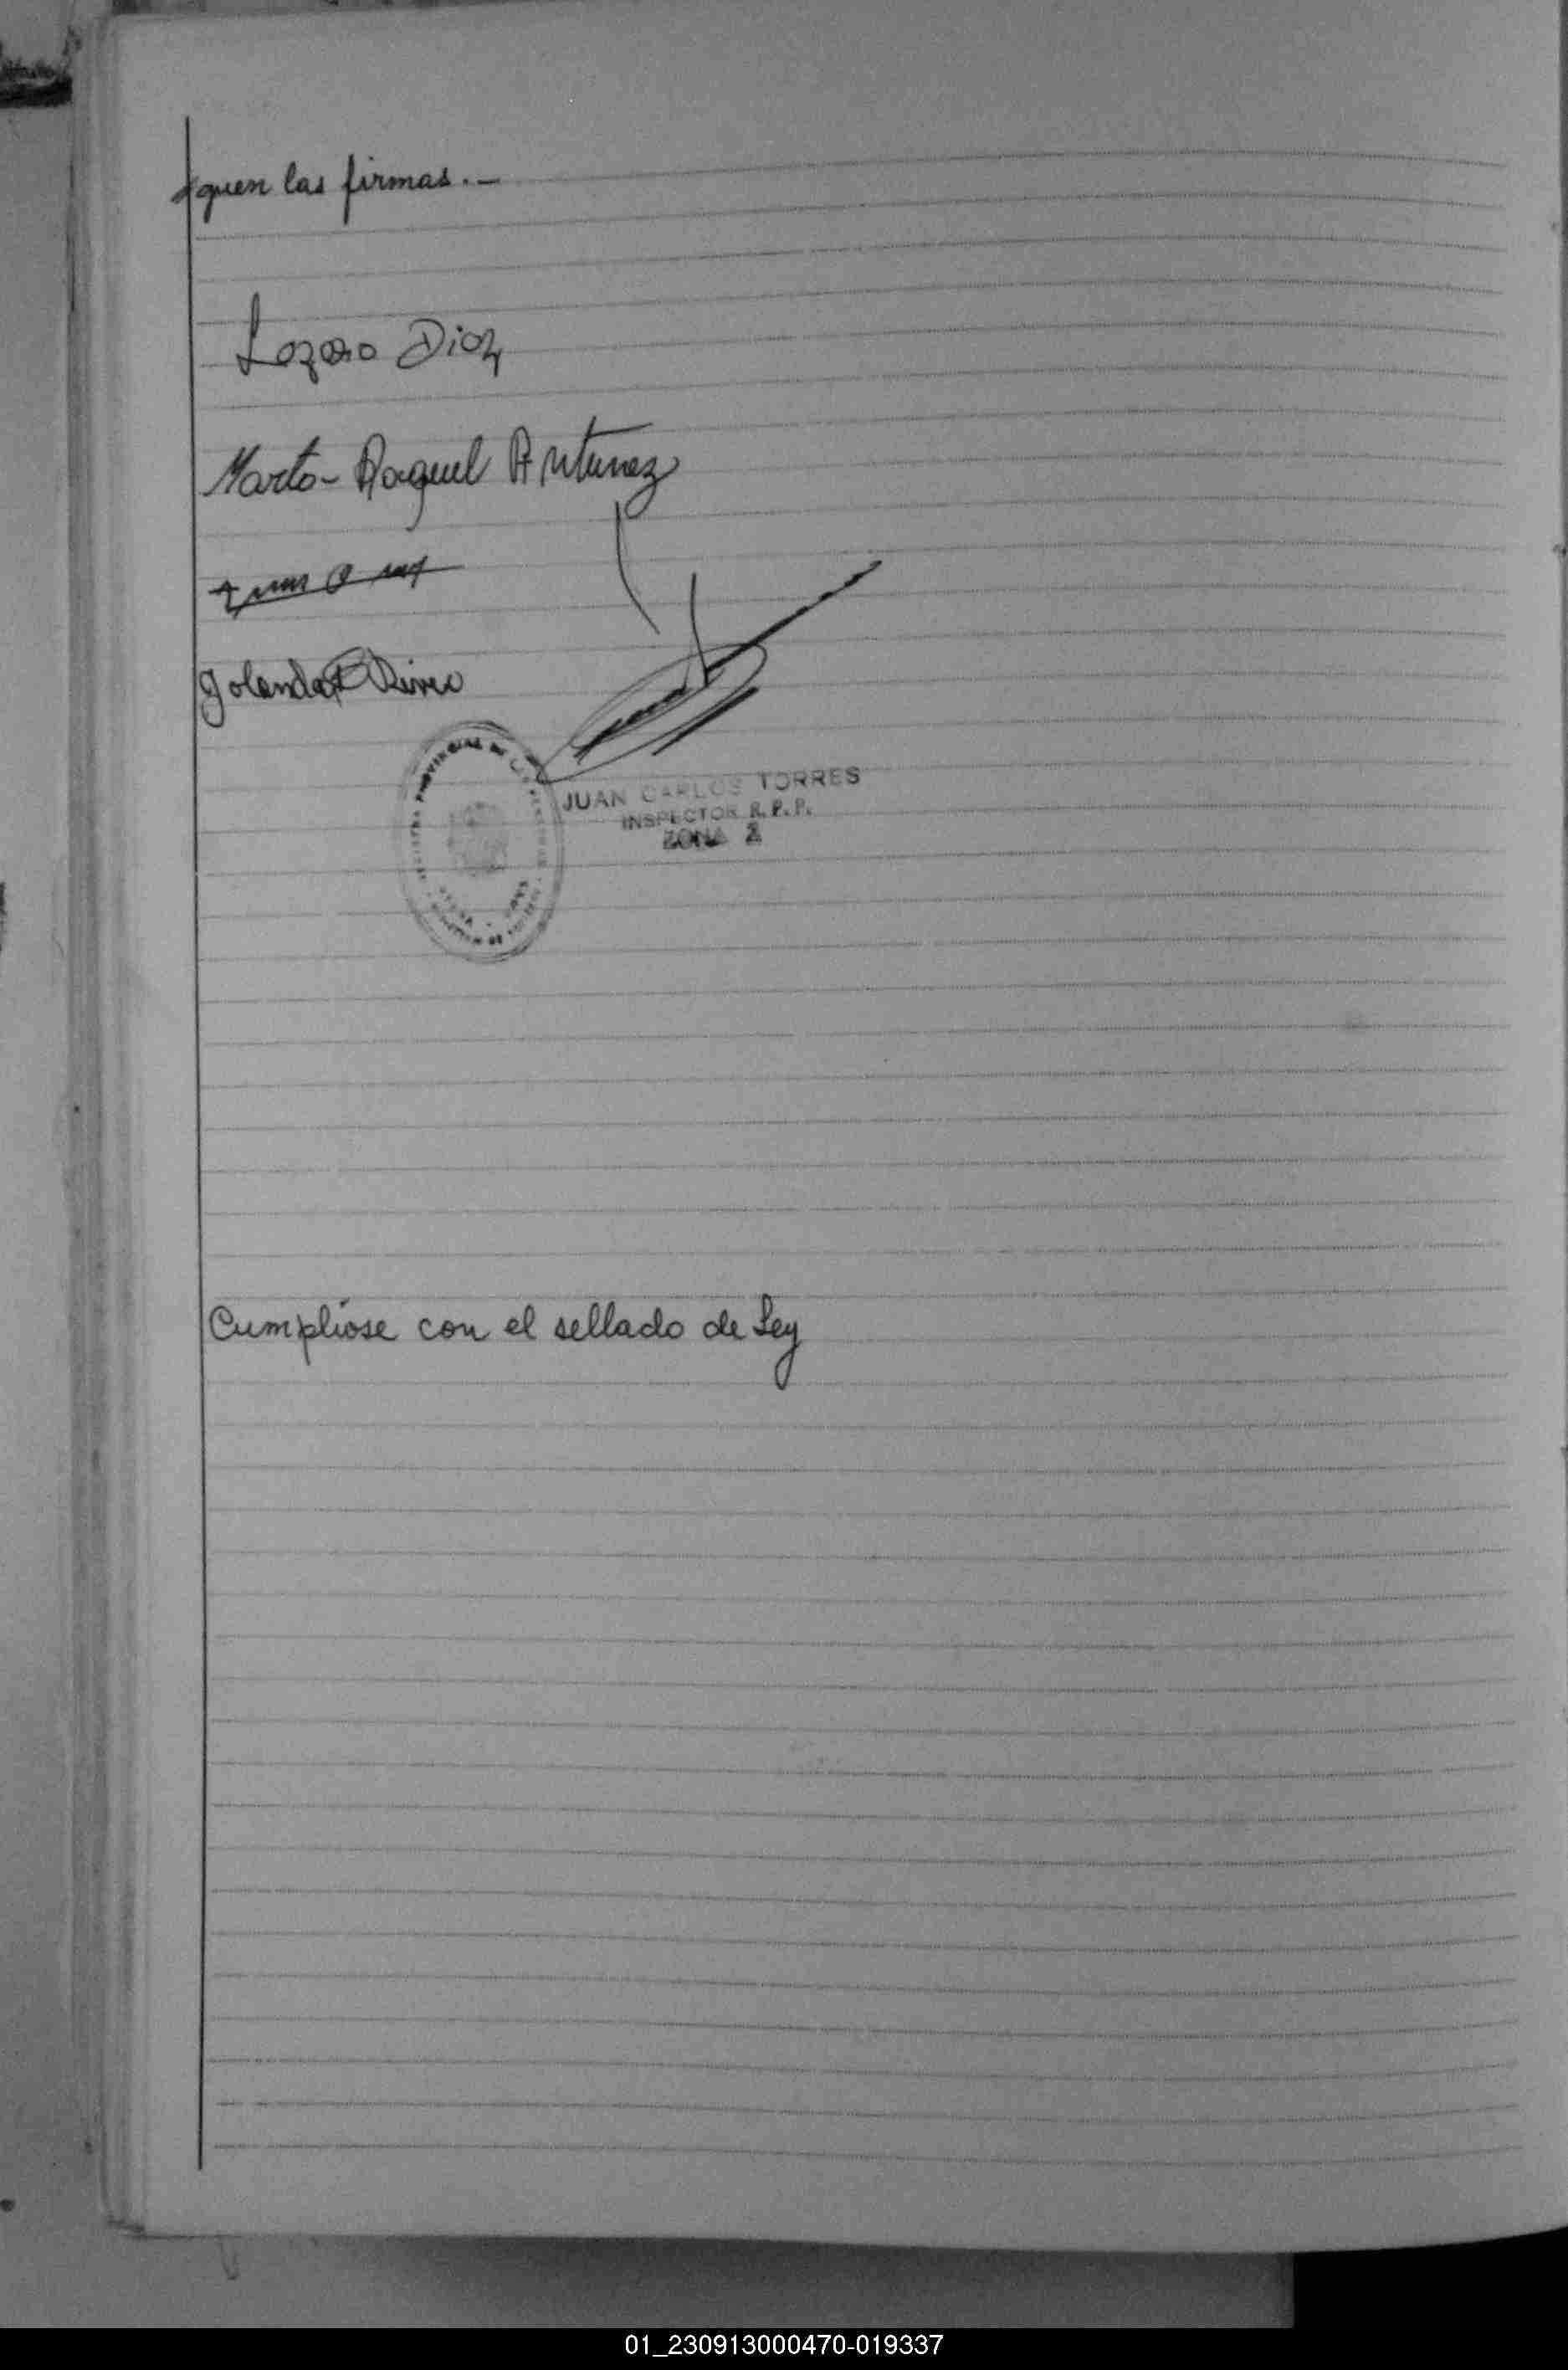 siguen las firmas.-
Lazaro Diaz
Marta Raquel Antunez
Yolanda Rivero
PROVINCIAL DE
JUAN CARLOS TORRES
INSPECTOR R.P.P.
ZONA 2
Cumplióse con el sellado de Ley
01_230913000470-019337